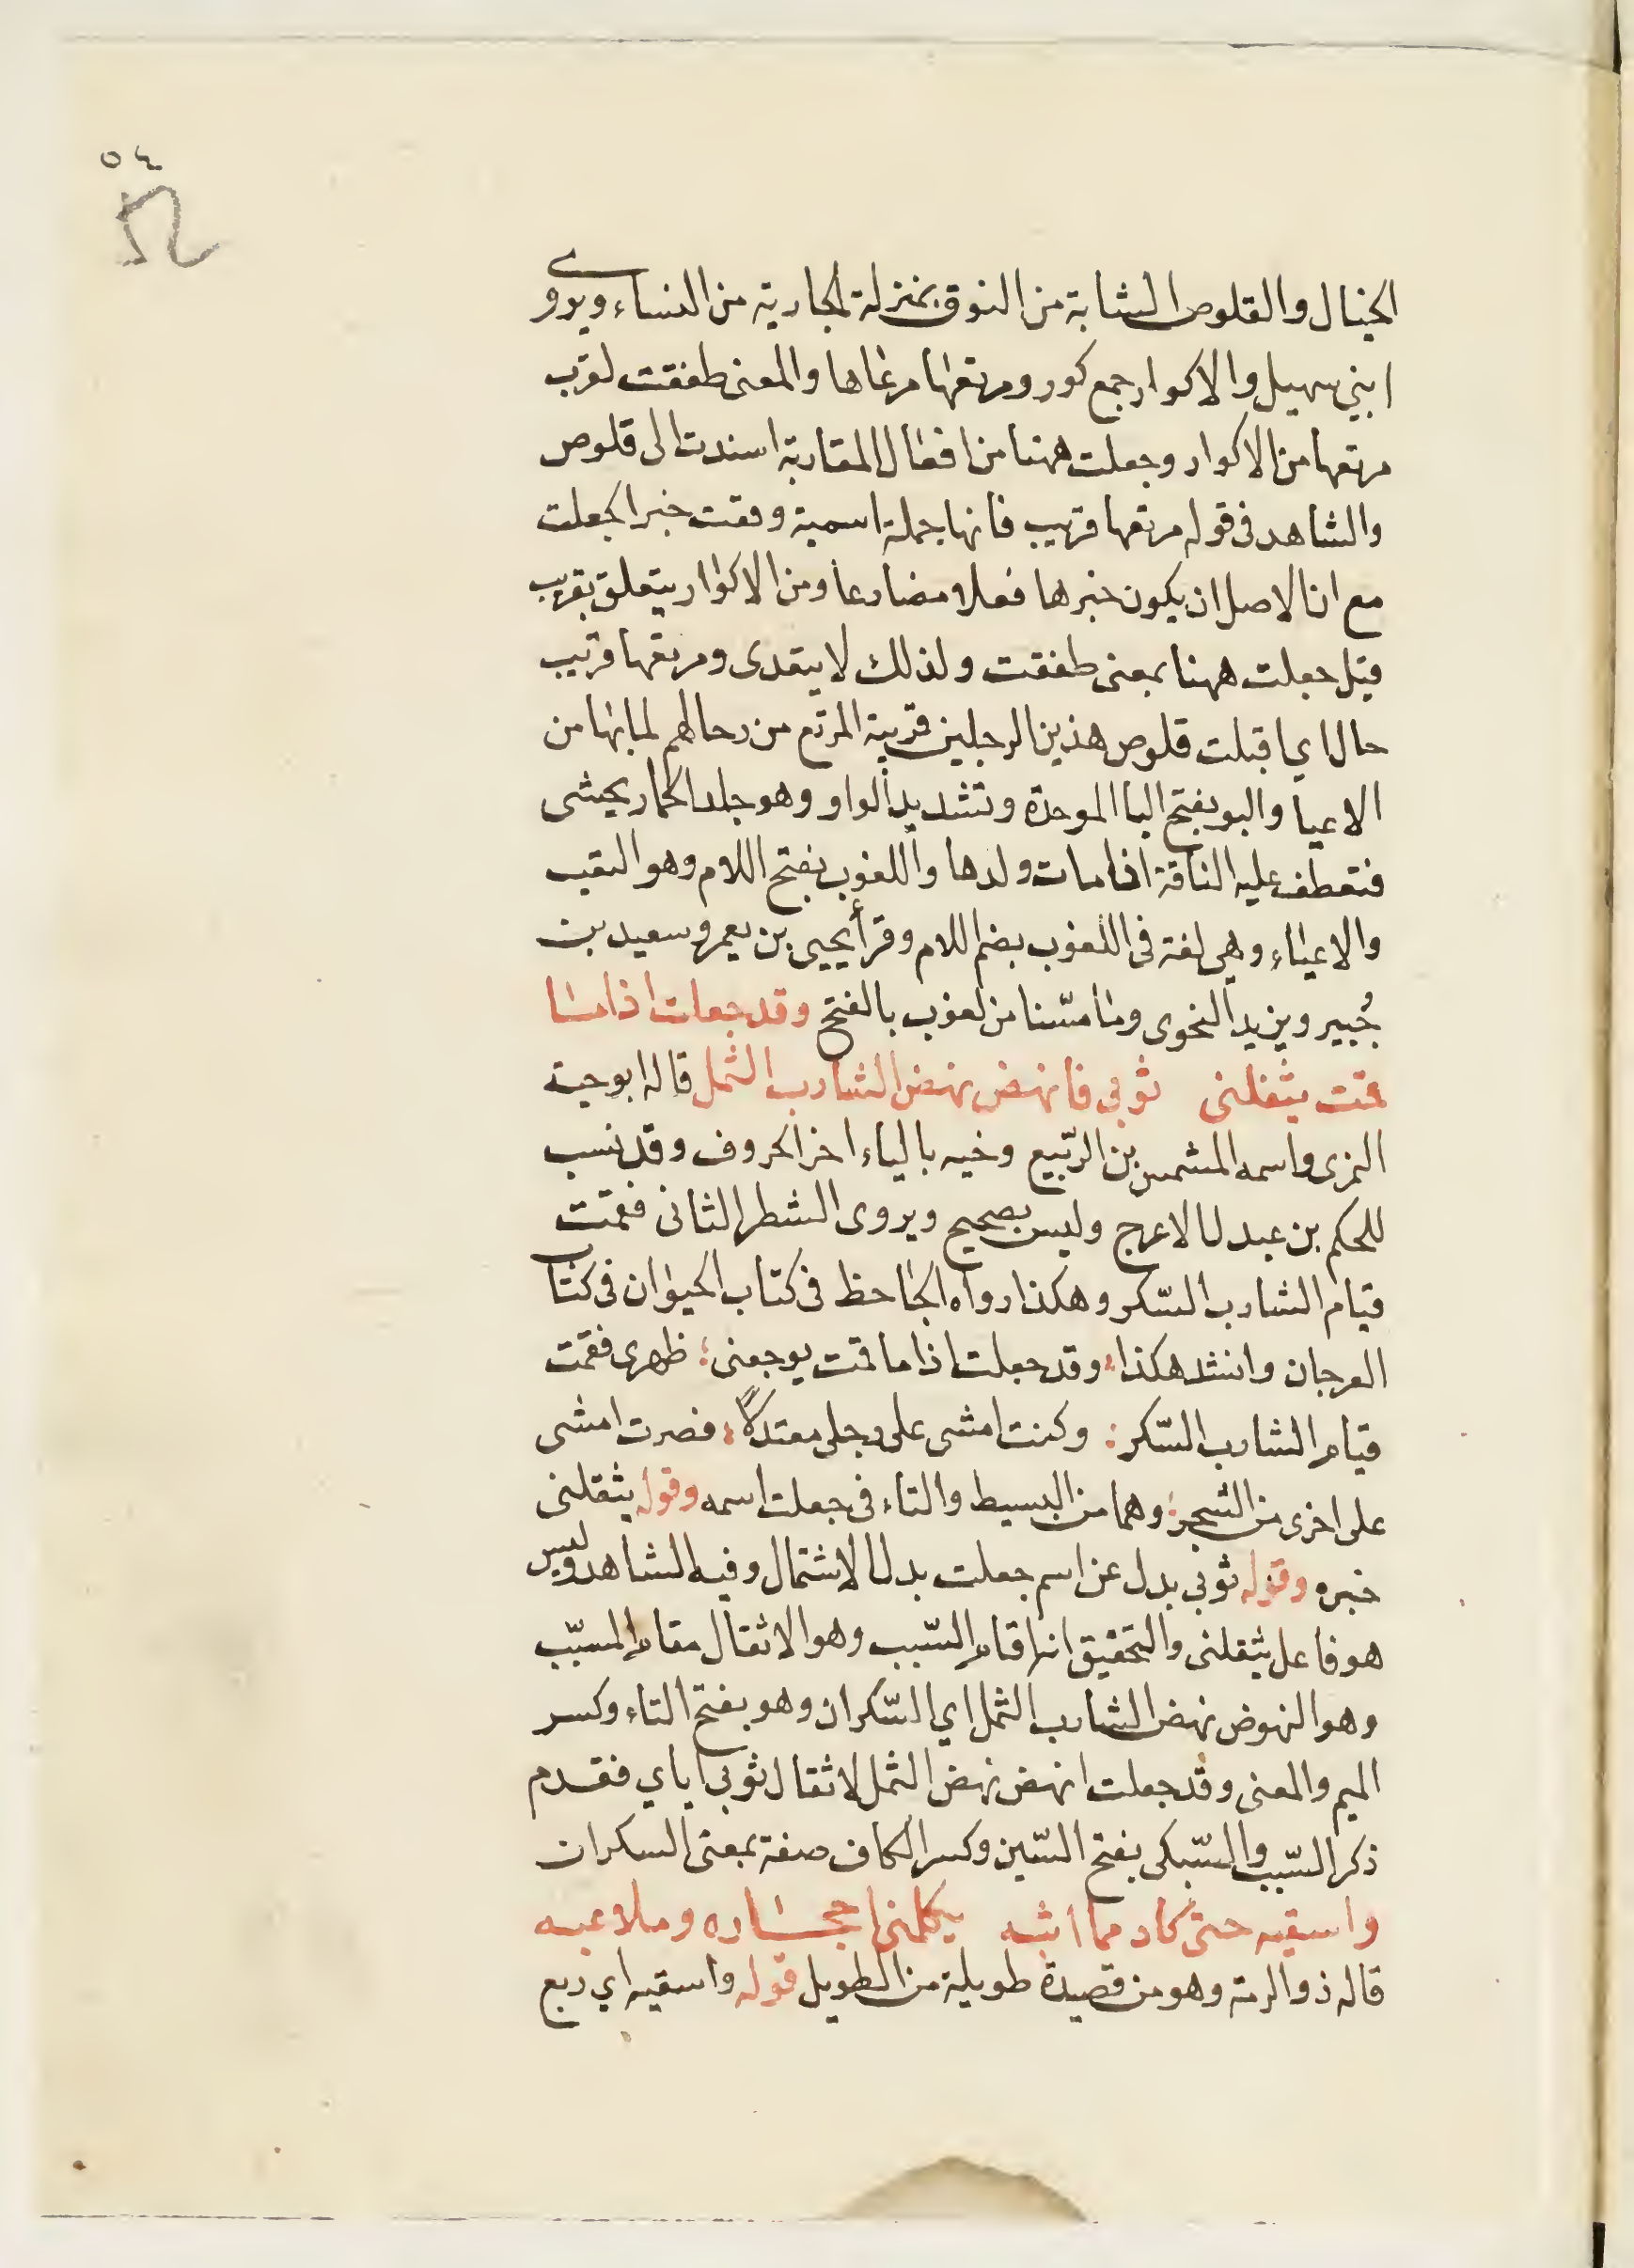 ٥٤
الخيال والقلوص الشابة من النوق بمنزلة الجارية من النساء ويروى
ابني سهيل والاكوار جمع كور ومرتعها مرعاها والمعنى طفقت لقرب
مرتعها من الاكوار وجعلت ههنا من افعال المقاربة اسندت الى قلوص
والشاهد فى قوله مرتعها قريب فانها جملة اسمية وقعت خبرا لجعلت
مع ان الاصل ان يكون خبرها فعلا مضارعا ومن الاكوار يتعلق بقريب
قيل جعلت ههنا بمعنى طفقت ولذلك لا يتعدى ومرتعها قريب
حال اي اقبلت قلوص هذين الرجلين قريبة المرتع من رحالهم لما بها من
الاعيا والبو بفتح البا الموحدة وتشديد الواو وهو جلد الحمار يحشى
فتعطف عليه الناقة اذا مات ولدها واللغوب بفتح اللام وهو التعب
والاعياء وهي لغة فى اللغوب بضم اللام وقرأ يحيى بن يعمر وسعيد بن
جُبير ويزيد النحوى وما مسّنا من لغوب بالفتح وقد جعلت اذا ما
قمت يثقلنى ثوبى فانهض نهض الشارب الثمل قاله ابو حية
النمرى واسمه المشمر بن الربّيع وحيه بالياء اخر الحروف وقد نسب
للحكم بن عبدل الاعرج وليس بصحيح ويروى الشطر الثانى فقمت
قيام الشارب السّكر وهكذا رواه الجاحظ فى كتاب الحيوان فى كتاب
العرجان وانشد هكذا وقد جعلت اذا ما قمت يوجعنى ظهرى فقمت
قيام الشارب السّكر وكنت امشى على رجلى معتدلًا فصرت امشى
على اخرى من الشجر وهما من البسيط والتاء فى جعلت اسمه وقوله يثقلنى
خبره وقوله ثوبى بدل عن اسم جعلت بدل الاشتمال وفيه الشاهد وليس
هو فاعل يثقلنى والتحقيق انه اقام السّبب وهو الاثقال مقام المسبّب
وهو النهوض نهض الشارب الثمل اي السّكران وهو بفتح الثاء وكسر
الميم والمعنى وقد جعلت انهض نهض الثمل لاثقال ثوبى اياي فقدم
ذكر السّبب والسّكر بفتح السّين وكسر الكاف صفة بمعنى السكران
واسقيه حتى كاد مما ابثه يكلمنى احجاره وملاعبه
قاله ذو الرمة وهو من قصيدة طويلة من الطويل قوله واسقيه اي ربع